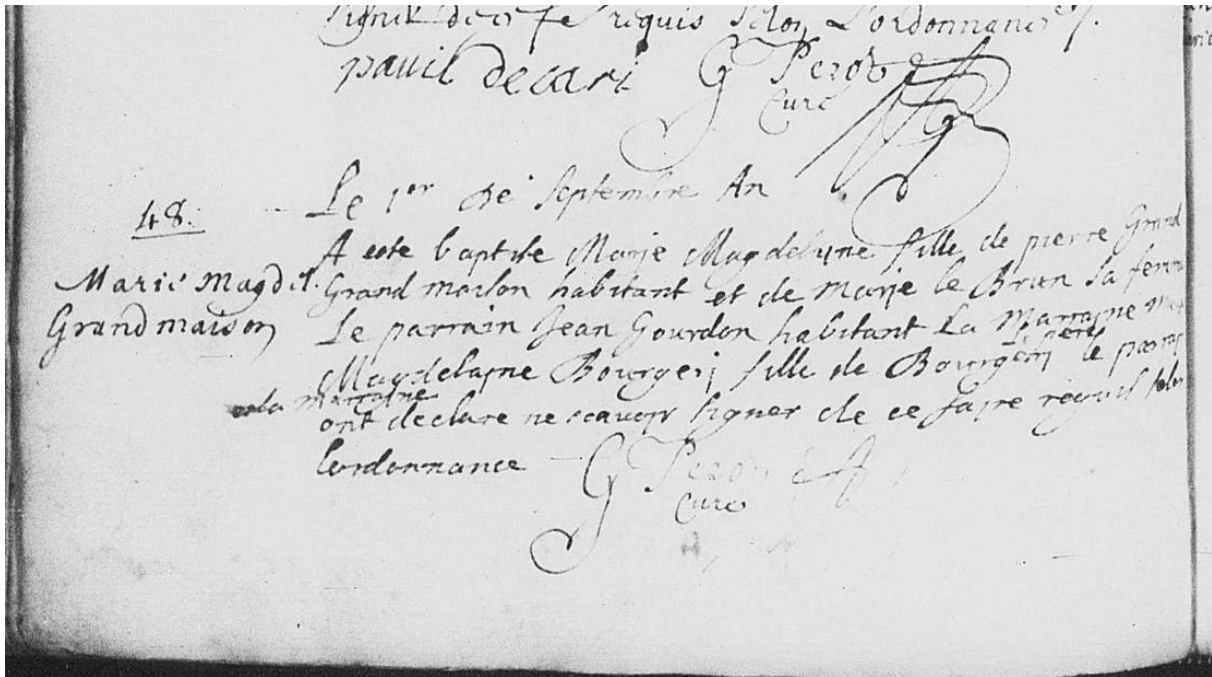 signer de ce requis selon L'ordonnance
pauil decari G Perot
Curé
Le 1er de Septembre An
48.
A este baptise Marje Magdelayne fille de pierre Grand
Marie Magdel.
Grand maison habitant et de Marje le Brun sa femme
Grandmaison
Le parrain Jean Gourdon habitant La Marraine
Magdelayne Bourgery fille de Bourgery le parrain
et la marraine
ont declare ne scavoir signer de ce faire requis selon
lordonnance G Perot
Curé